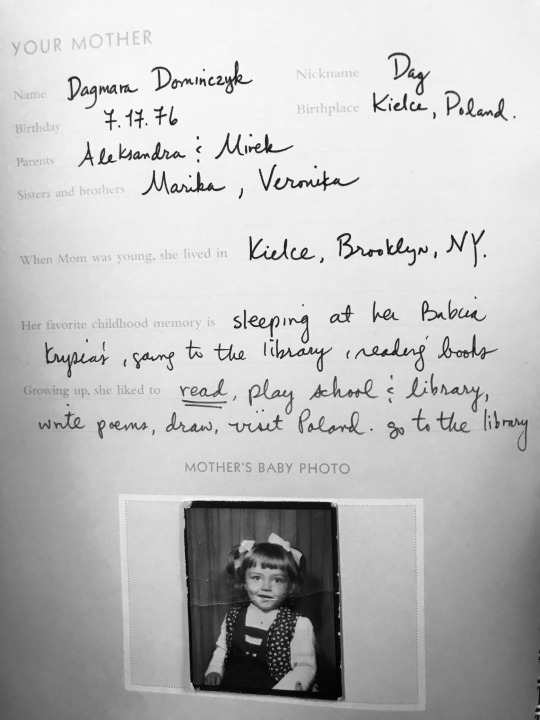 YOUR MOTHER
Name Dagmara Domińczyk Nickname Dag
Birthday 7.17.76 Birthplace Kielce, Poland.
Parents Aleksandra & Mirek
Sisters and brothers Marika, Veronika
When Mom was young, she lived in Kielce, Brooklyn, NY.
Her favorite childhood memory is sleeping at her Babcia
Krysia's, going to the library, reading books
Growing up, she liked to read, play school & library,
write poems, draw, visit Poland. go to the library
MOTHER'S BABY PHOTO